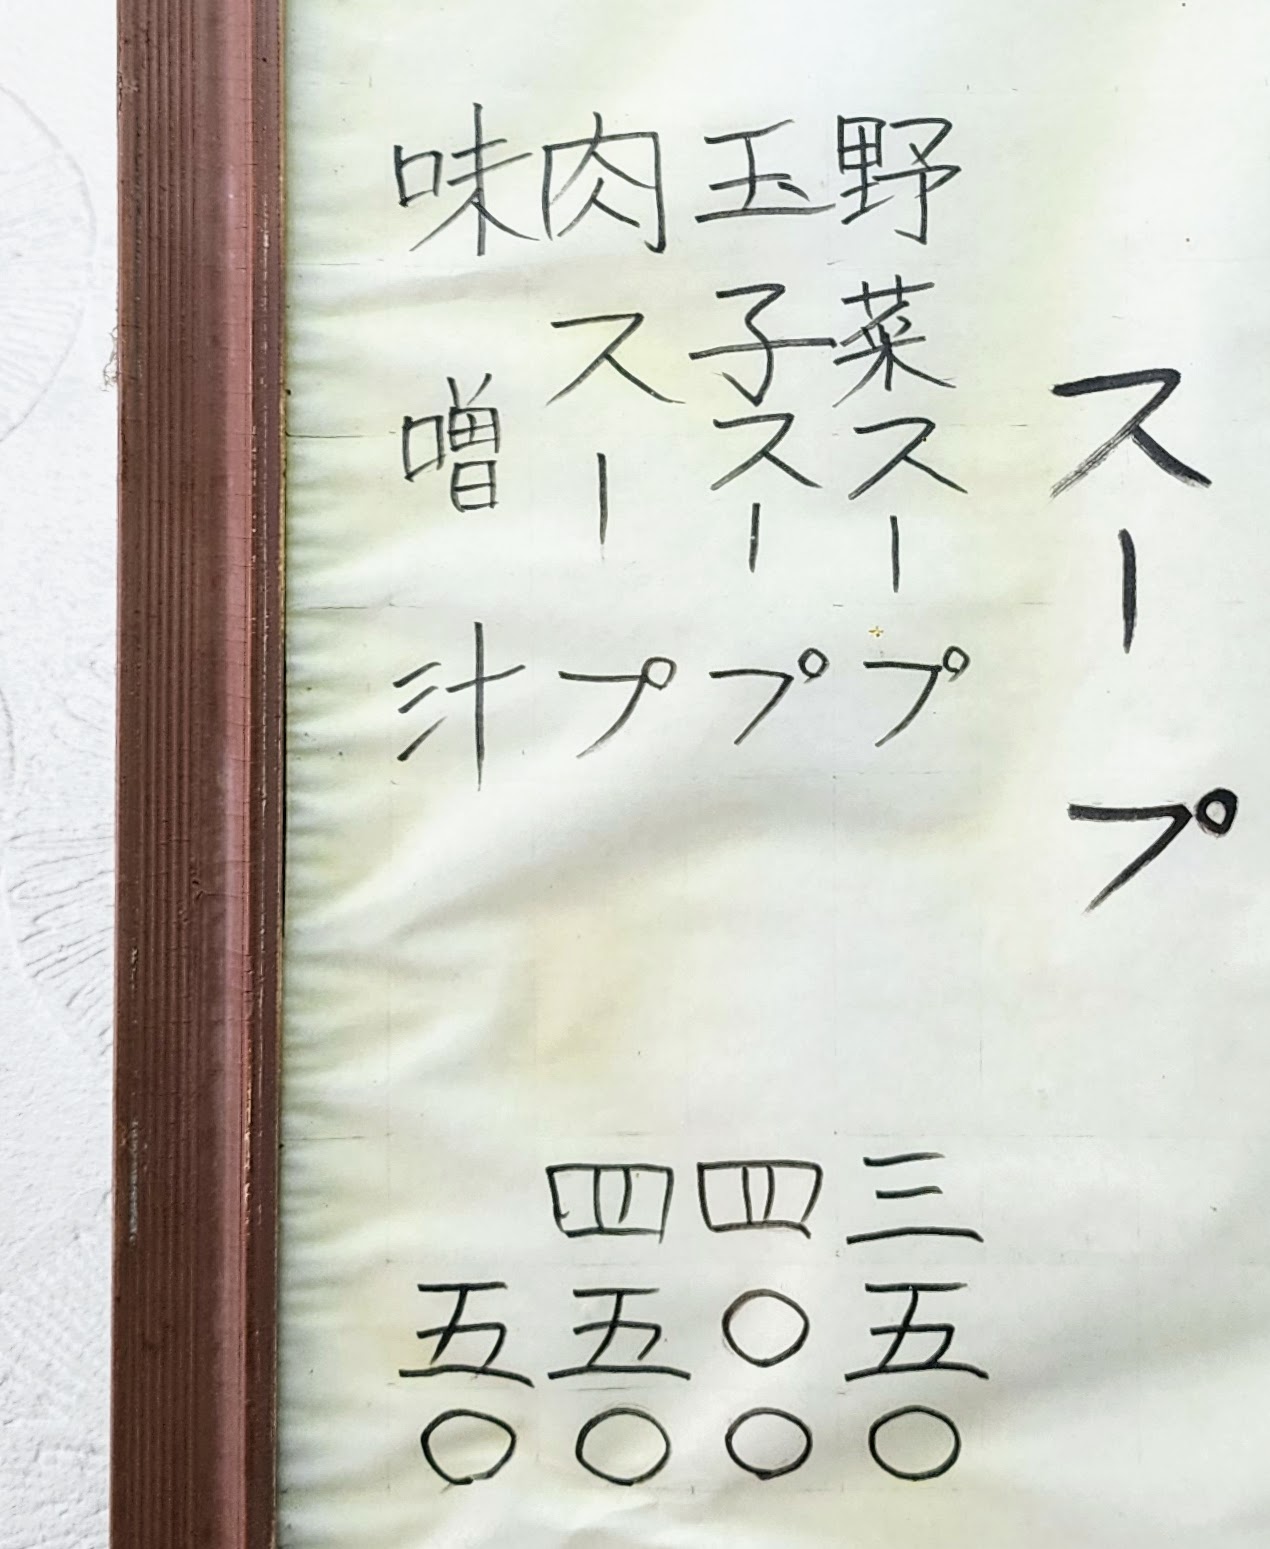 スープ
野菜スープ 三五〇
玉子スープ 四〇〇
肉スープ 四五〇
味噌汁 五〇